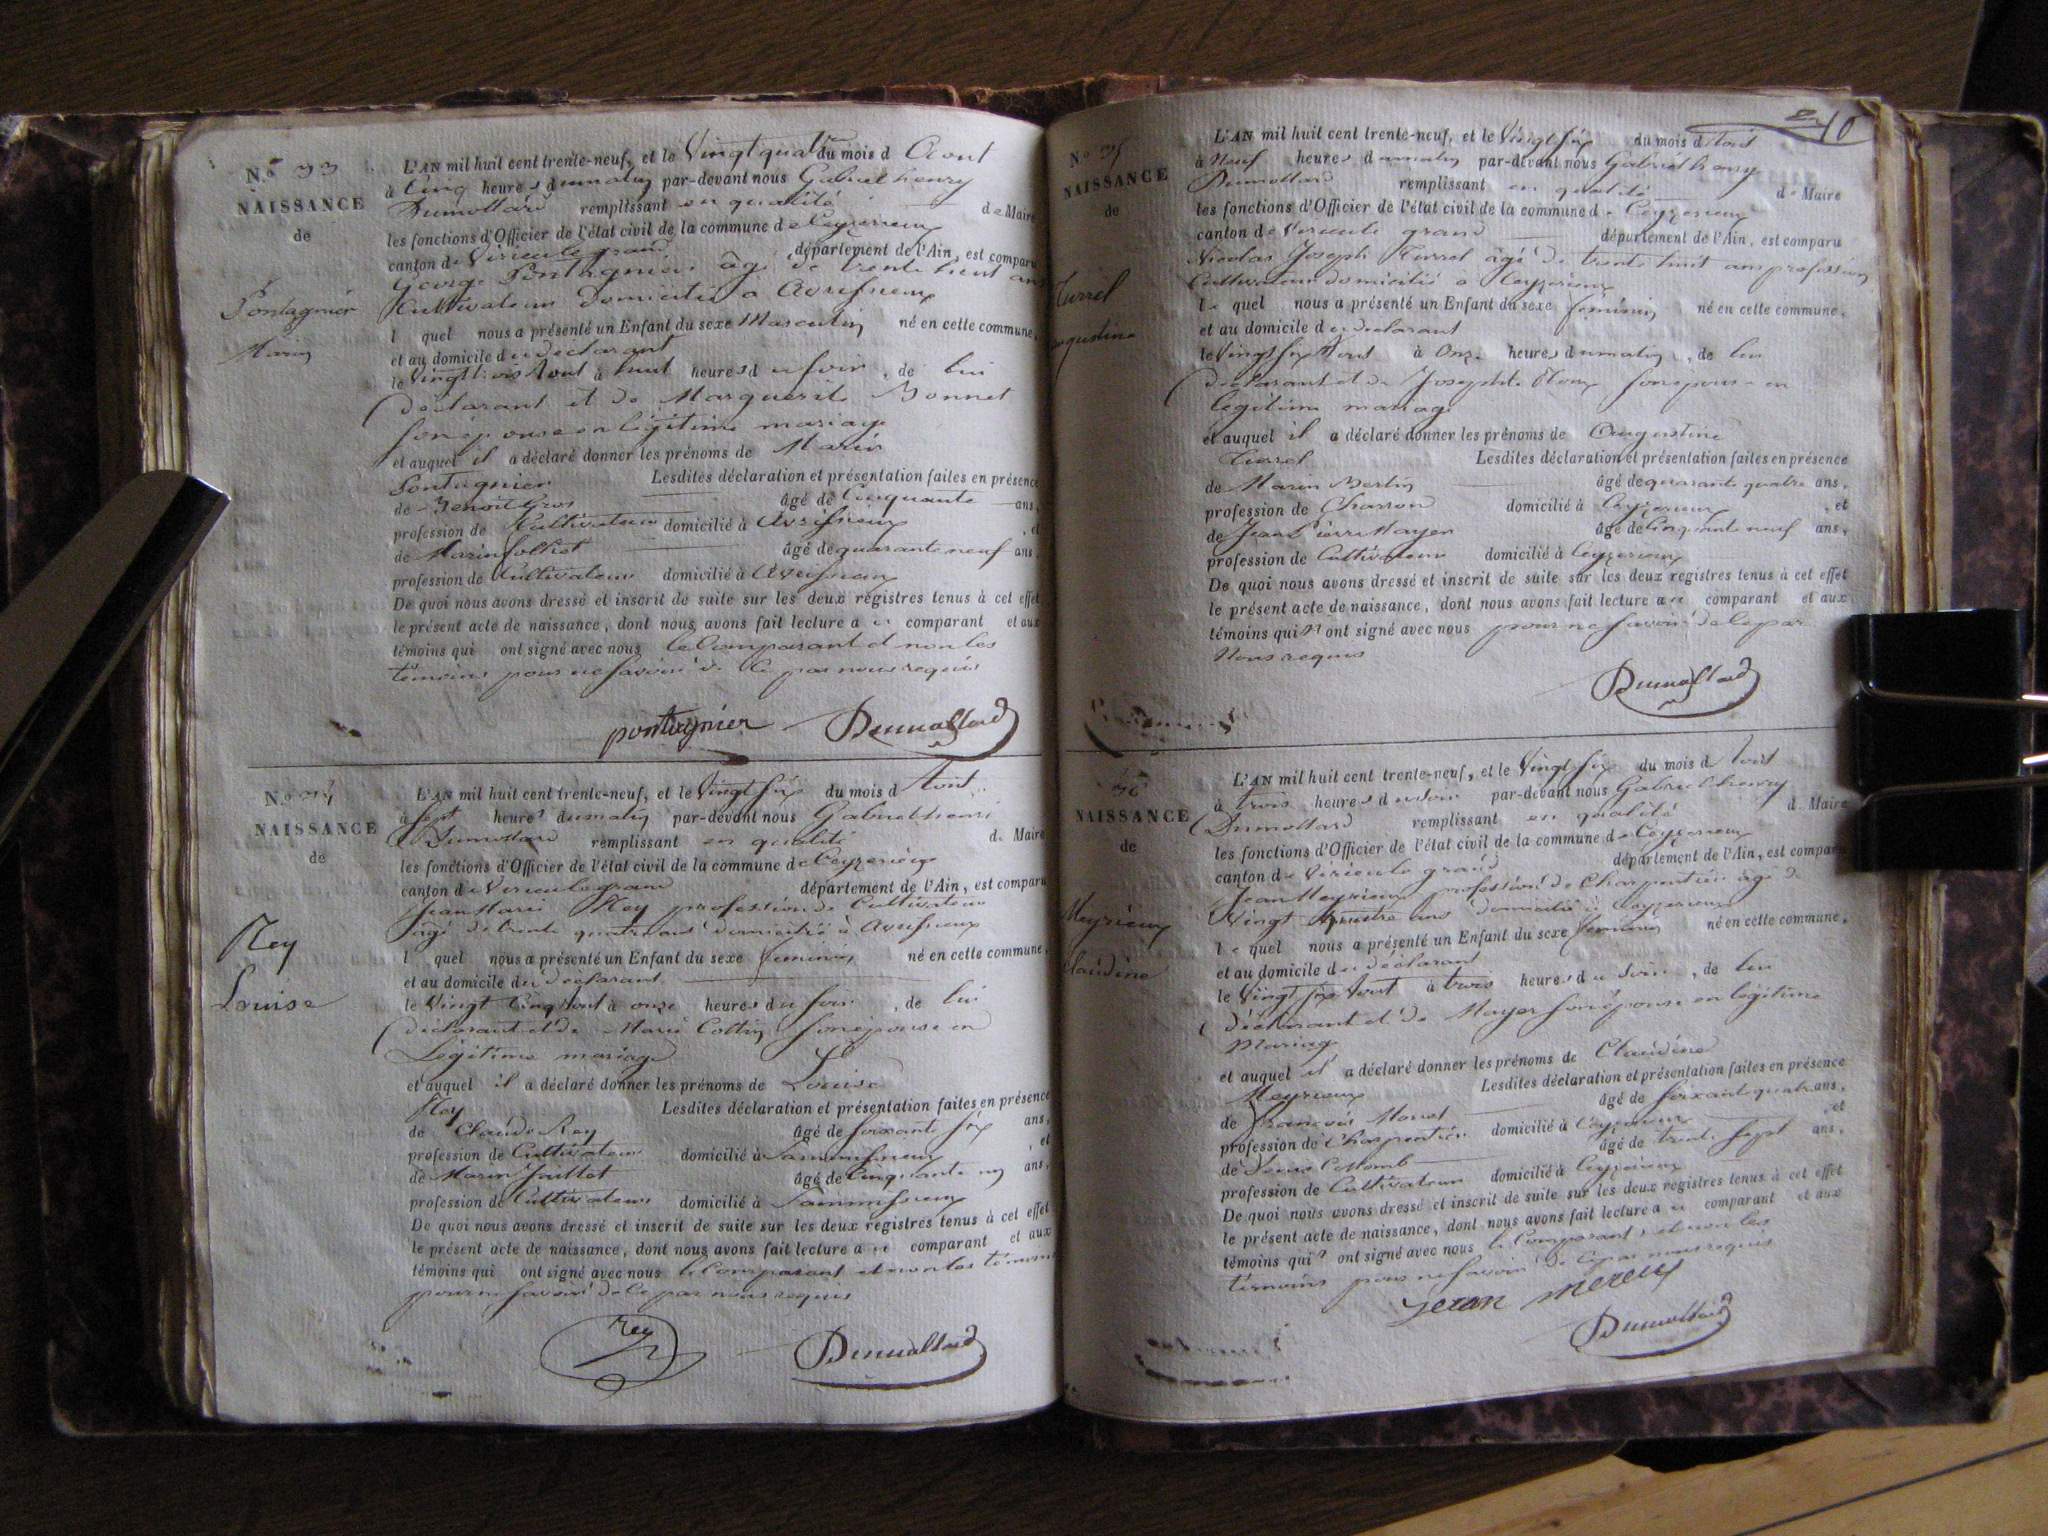 N.o 33
NAISSANCE
de
Pontagnier
Marin
L'AN mil huit cent trente-neuf, et le Vingt quatre du mois d Aout
à Cinq heures du matin par-devant nous Gabriel henry
Dumollard remplissant en qualité de Maire
les fonctions d'Officier de l'état civil de la commune de Ceyzerieux
canton de Virieu le grand département de l'Ain, est comparu
George Pontagnier âgé de trente huit ans
Cultivateur domicilié a Avrissieux
l quel nous a présenté un Enfant du sexe Masculin né en cette commune,
et au domicile du déclarant
le Vingt trois Aout à huit heures du soir, de lui
déclarant et de Marguerite Bonnet
son épouse en légitime mariage
et auquel il a déclaré donner les prénoms de Marin
Pontagnier Lesdites déclaration et présentation faites en présence
de Benoit Gros âgé de Cinquante ans,
profession de Cultivateur domicilié à Avrissieux, et
de Marin folliet âgé de quarante neuf ans,
profession de Cultivateur domicilié à Avrissieux
De quoi nous avons dressé et inscrit de suite sur les deux registres tenus à cet effet
le présent acte de naissance, dont nous avons fait lecture au comparant et aux
témoins qui ont signé avec nous le Comparant et non les
témoins pour ne savoir de ce par nous requis
pontagnier Dumollard
N.o 34
NAISSANCE
de
Rey
Louise
L'AN mil huit cent trente-neuf, et le Vingt six du mois d Aout
à sept heures du matin par-devant nous Gabriel henri
Dumollard remplissant en qualité de Maire
les fonctions d'Officier de l'état civil de la commune de Ceyzerieux
canton de Virieu le grand département de l'Ain, est comparu
Jean Marie Rey profession de Cultivateur
âgé de trente quatre ans domicilié à Avrissieux
l quel nous a présenté un Enfant du sexe féminin né en cette commune,
et au domicile du déclarant
le Vingt Cinq Aout à onze heures du soir, de lui
déclarant et de Marie Cottin son épouse en
Légitime mariage
et auquel il a déclaré donner les prénoms de Louise
Rey Lesdites déclaration et présentation faites en présence
de Claude Rey âgé de soixante six ans,
profession de Cultivateur domicilié à, et
de Marin Juillet âgé de Cinquante un ans,
profession de Cultivateur domicilié à
De quoi nous avons dressé et inscrit de suite sur les deux registres tenus à cet effet
le présent acte de naissance, dont nous avons fait lecture au comparant et aux
témoins qui ont signé avec nous le Comparant et non les témoins
pour ne savoir de ce par nous requis
rey Dumollard
10
N.o 35
NAISSANCE
de
Turrel
Augustine
L'AN mil huit cent trente-neuf, et le Vingt six du mois d Aout
à Neuf heures du matin par-devant nous Gabriel henry
Dumollard remplissant en qualité de Maire
les fonctions d'Officier de l'état civil de la commune de Ceyzerieux
canton de Virieu le grand département de l'Ain, est comparu
Nicolas Joseph Turrel âgé de trente huit ans profession
Cultivateur domicilié a Ceyzerieux
le quel nous a présenté un Enfant du sexe féminin né en cette commune,
et au domicile du déclarant
le Vingt six Aout à Onze heures du matin, de lui
déclarant et de Josephte son épouse en
légitime mariage
et auquel il a déclaré donner les prénoms de Augustine
Turrel Lesdites déclaration et présentation faites en présence
de Marin Bertin âgé de quarante quatre ans,
profession de Charron domicilié à Ceyzerieux, et
de Jean Pierre Mayer âgé de Cinquante neuf ans,
profession de Cultivateur domicilié à Ceyzerieux
De quoi nous avons dressé et inscrit de suite sur les deux registres tenus à cet effet
le présent acte de naissance, dont nous avons fait lecture au comparant et aux
témoins qui n ont signé avec nous pour ne savoir de ce par
Nous requis
Dumollard
36
NAISSANCE
de
Meyrieux
Claudine
L'AN mil huit cent trente-neuf, et le Vingt six du mois d Aout
à trois heures du soir par-devant nous Gabriel henry
Dumollard remplissant en qualité de Maire
les fonctions d'Officier de l'état civil de la commune de Ceyzerieux
canton de Virieu le grand département de l'Ain, est comparu
Jean Meyrieux profession de Charpentier âgé de
Vingt quatre ans domicilié à Ceyzerieux
le quel nous a présenté un Enfant du sexe féminin né en cette commune,
et au domicile du déclarant
le Vingt six Aout à trois heures du soir, de lui
déclarant et de Mayer son épouse en légitime
Mariage
et auquel il a déclaré donner les prénoms de Claudine
Meyrieux Lesdites déclaration et présentation faites en présence
de François Monet âgé de soixante quatre ans,
profession de Charpentier domicilié à Ceyzerieux, et
de Collomb âgé de trente sept ans,
profession de Cultivateur domicilié à Ceyzerieux
De quoi nous avons dressé et inscrit de suite sur les deux registres tenus à cet effet
le présent acte de naissance, dont nous avons fait lecture au comparant et aux
témoins qui ont signé avec nous le Comparant et non les
témoins pour ne savoir de ce par nous requis
jean mereux
Dumollard